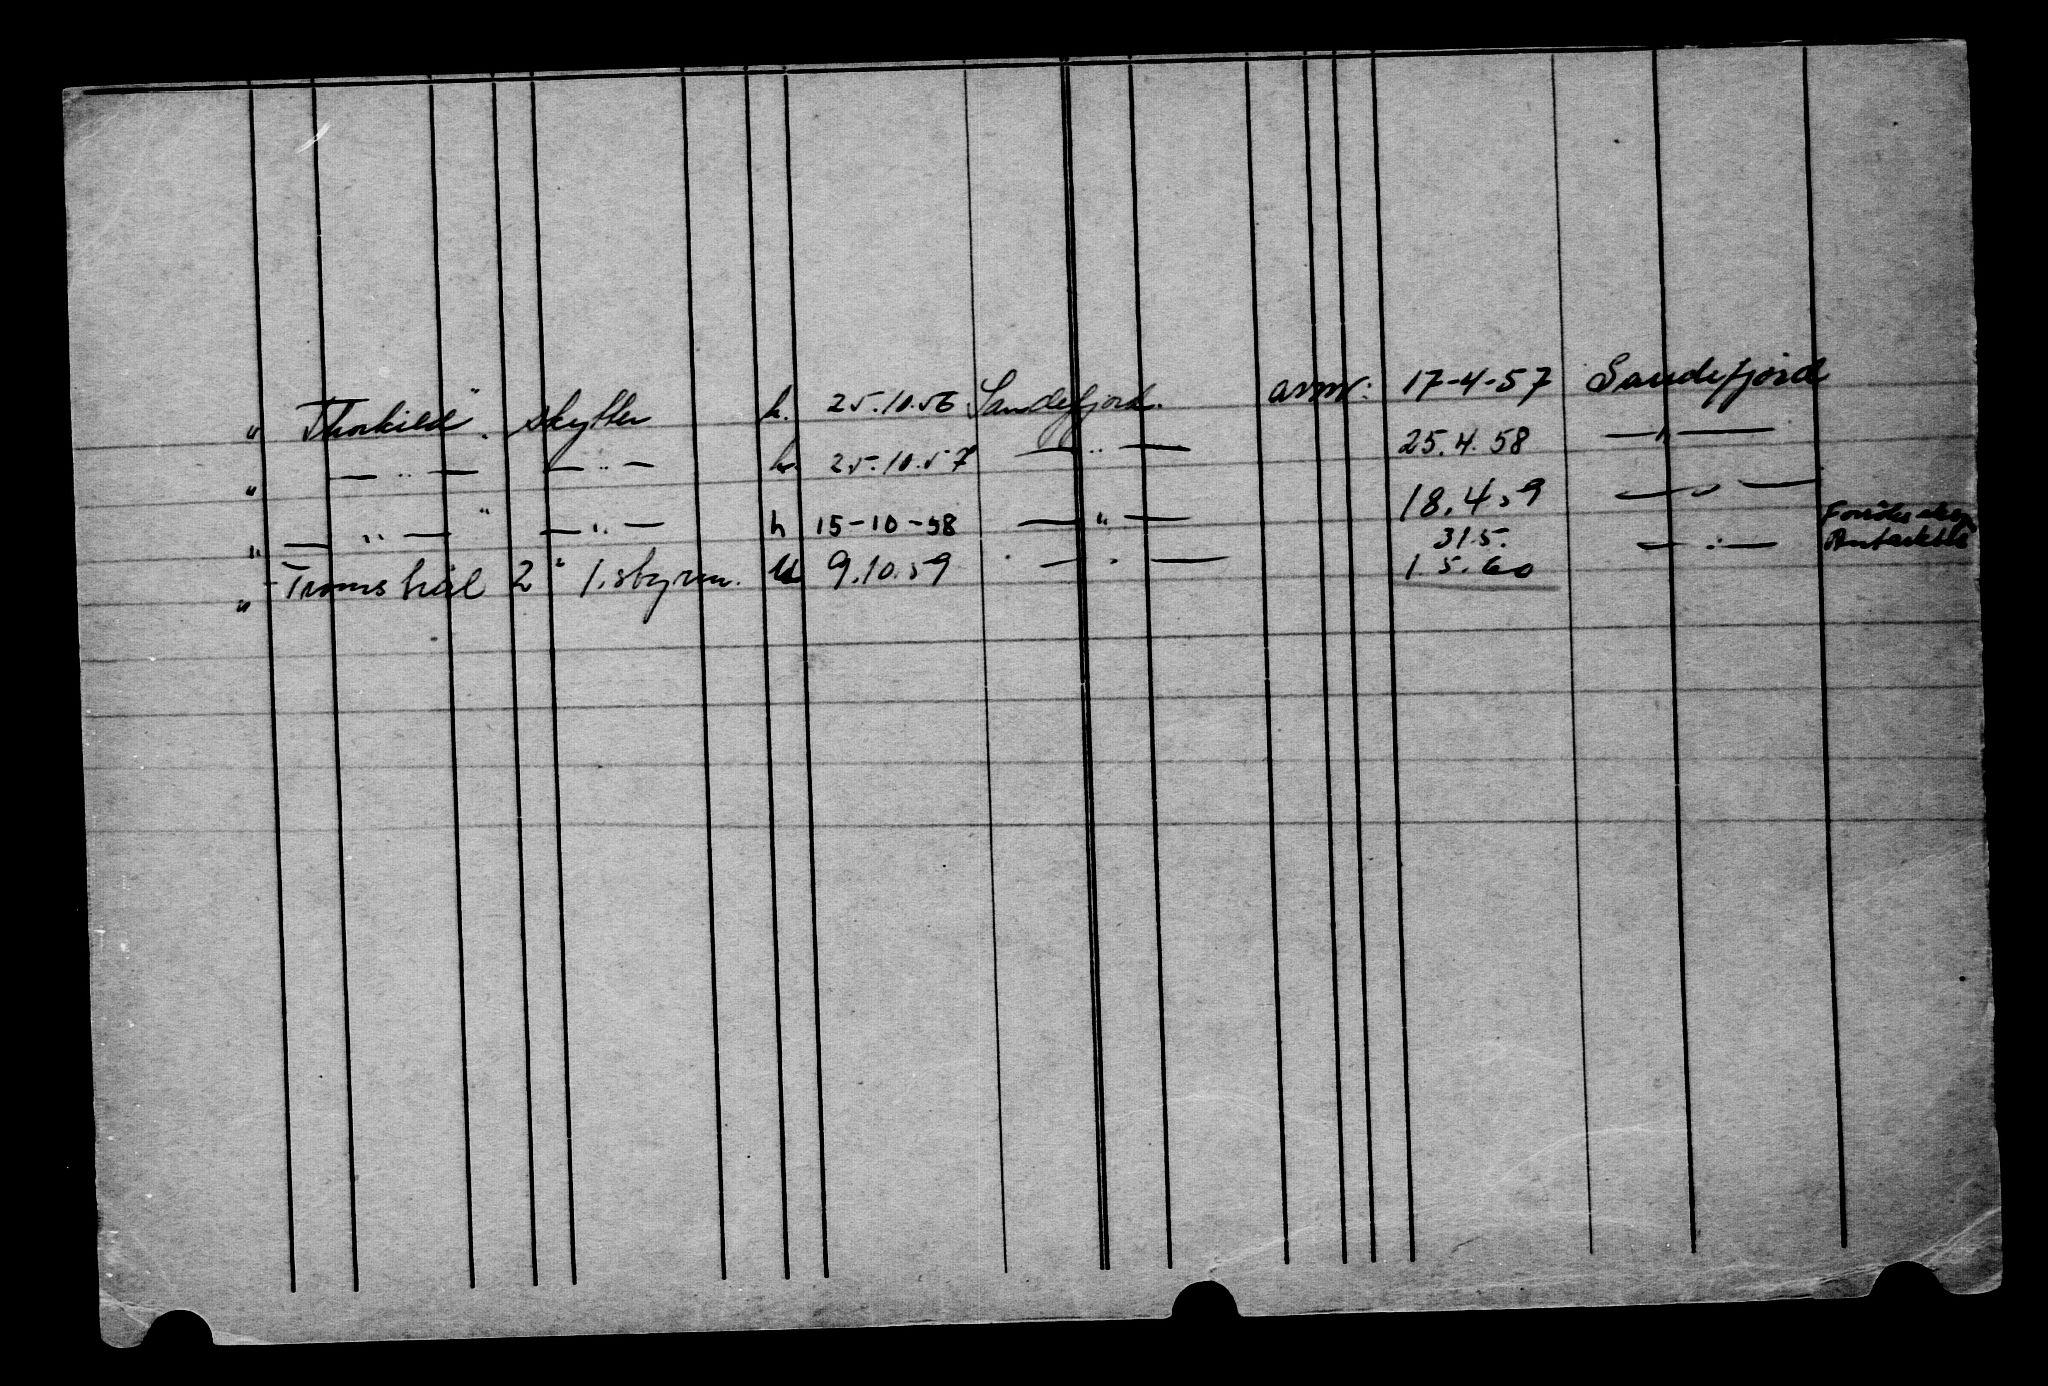 " Thorkild". skytter h. 25.10.56 Sandefjord. avm: 17-4-57 Sandefjord
" — " — — " — h. 25.10.57 — " — 25.4.58 — " —
" — " — " — " — h 15-10-58 — " — 18.4.59 — " —
31.5. Antarktis
" Tromshval 2" 1. styrm. U 9.10.59 — " — 1.5.60 — " —